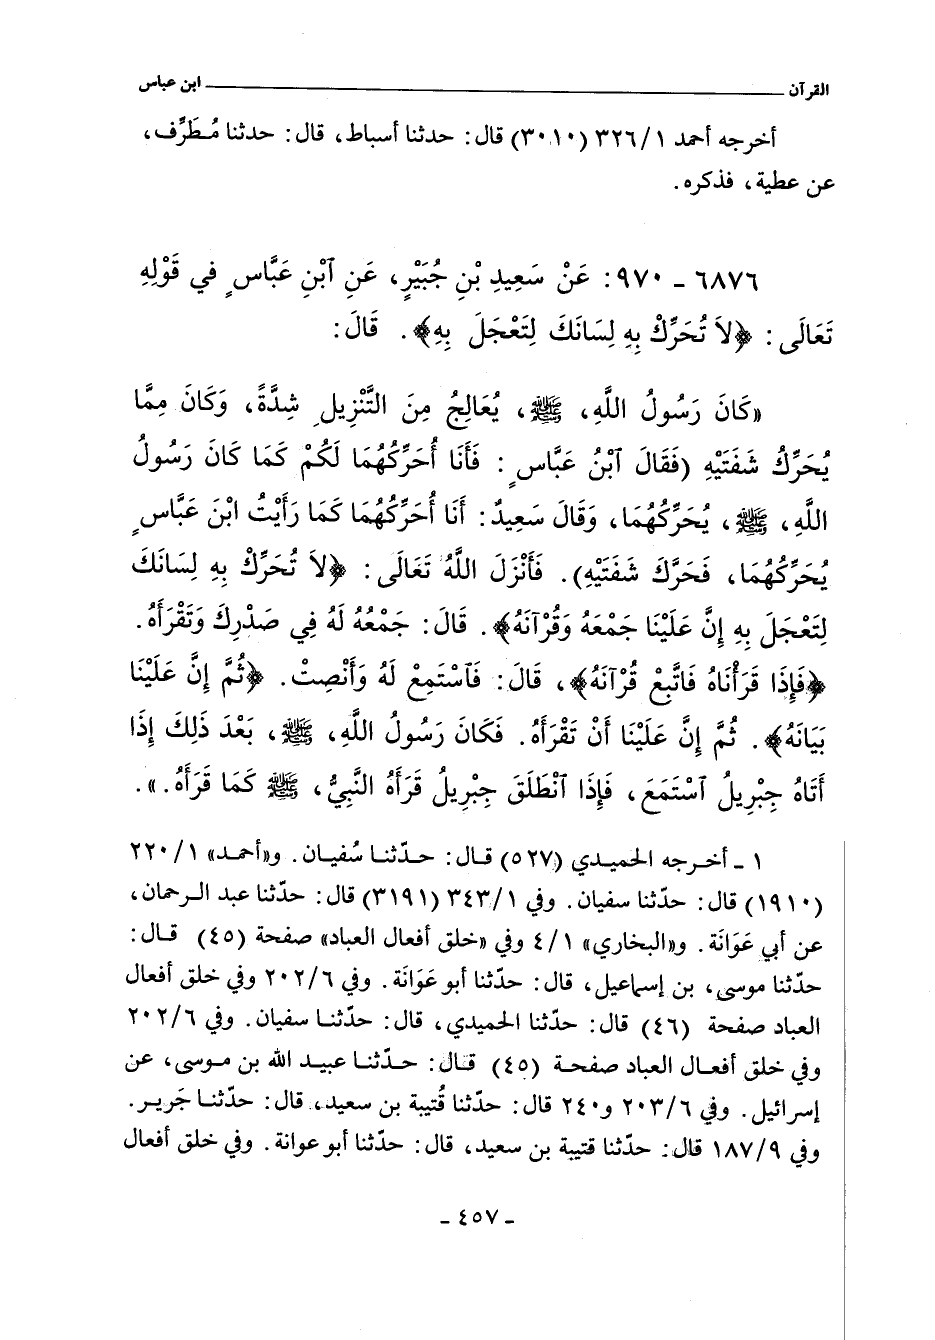 القرآن ــــــــــــــــــــ ابن عباس
أخرجه أحمد ٣٢٦/١ (٣٠١٠) قال: حدثنا أسباط، قال: حدثنا مُطَرِّف،
عن عطية، فذكره.
٦٨٧٦ ـ ٩٧٠: عَنْ سَعِيدِ بْنِ جُبَيْرٍ، عَنِ ٱبْنِ عَبَّاسٍ في قَوْلِهِ
تَعَالَى: ﴿لاَ تُحَرِّكْ بِهِ لِسَانَكَ لِتَعْجَلَ بِهِ﴾. قَالَ:
«كَانَ رَسُولُ اللَّهِ، ﷺ، يُعَالِجُ مِنَ التَّنْزِيلِ شِدَّةً، وَكَانَ مِمَّا
يُحَرِّكُ شَفَتَيْهِ (فَقَالَ ٱبْنُ عَبَّاسٍ: فَأَنَا أُحَرِّكُهُمَا لَكُمْ كَمَا كَانَ رَسُولُ
اللَّهِ، ﷺ، يُحَرِّكُهُمَا، وَقَالَ سَعِيدٌ: أَنَا أُحَرِّكُهُمَا كَمَا رَأَيْتُ ابْنَ عَبَّاسٍ
يُحَرِّكُهُمَا، فَحَرَّكَ شَفَتَيْهِ). فَأَنْزَلَ اللَّهُ تَعَالَى: ﴿لاَ تُحَرِّكْ بِهِ لِسَانَكَ
لِتَعْجَلَ بِهِ إِنَّ عَلَيْنَا جَمْعَهُ وَقُرْآنَهُ﴾. قَالَ: جَمْعُهُ لَهُ فِي صَدْرِكَ وَتَقْرَأَهُ.
﴿فَإِذَا قَرَأْنَاهُ فَاتَّبِعْ قُرْآنَهُ﴾، قَالَ: فَاسْتَمِعْ لَهُ وَأَنْصِتْ. ﴿ثُمَّ إِنَّ عَلَيْنَا
بَيَانَهُ﴾. ثُمَّ إِنَّ عَلَيْنَا أَنْ تَقْرَأَهُ. فَكَانَ رَسُولُ اللَّهِ، ﷺ، بَعْدَ ذَلِكَ إِذَا
أَتَاهُ جِبْرِيلُ ٱسْتَمَعَ، فَإِذَا ٱنْطَلَقَ جِبْرِيلُ قَرَأَهُ النَّبِيُّ، ﷺ كَمَا قَرَأَهُ.».
١ ـ أخرجه الحميدي (٥٢٧) قال: حدّثنا سُفيان. و«أحمد» ٢٢٠/١
(١٩١٠) قال: حدّثنا سفيان. وفي ٣٤٣/١ (٣١٩١) قال: حدّثنا عبد الرحمان،
عن أبي عَوَانَة. و«البخاري» ٤/١ وفي «خلق أفعال العباد» صفحة (٤٥) قال:
حدّثنا موسى، بن إسماعيل، قال: حدّثنا أبو عَوَانَة. وفي ٢٠٢/٦ وفي خلق أفعال
العباد صفحة (٤٦) قال: حدّثنا الحميدي، قال: حدّثنا سفيان. وفي ٢٠٢/٦
وفي خلق أفعال العباد صفحة (٤٥) قال: حدّثنا عبيد الله بن موسى، عن
إسرائيل. وفي ٢٠٣/٦ و٢٤٠ قال: حدّثنا قُتيبة بن سعيد، قال: حدّثنا جَرير.
وفي ١٨٧/٩ قال: حدّثنا قتيبة بن سعيد، قال: حدّثنا أبو عوانة. وفي خلق أفعال
ـ ٤٥٧ ـ